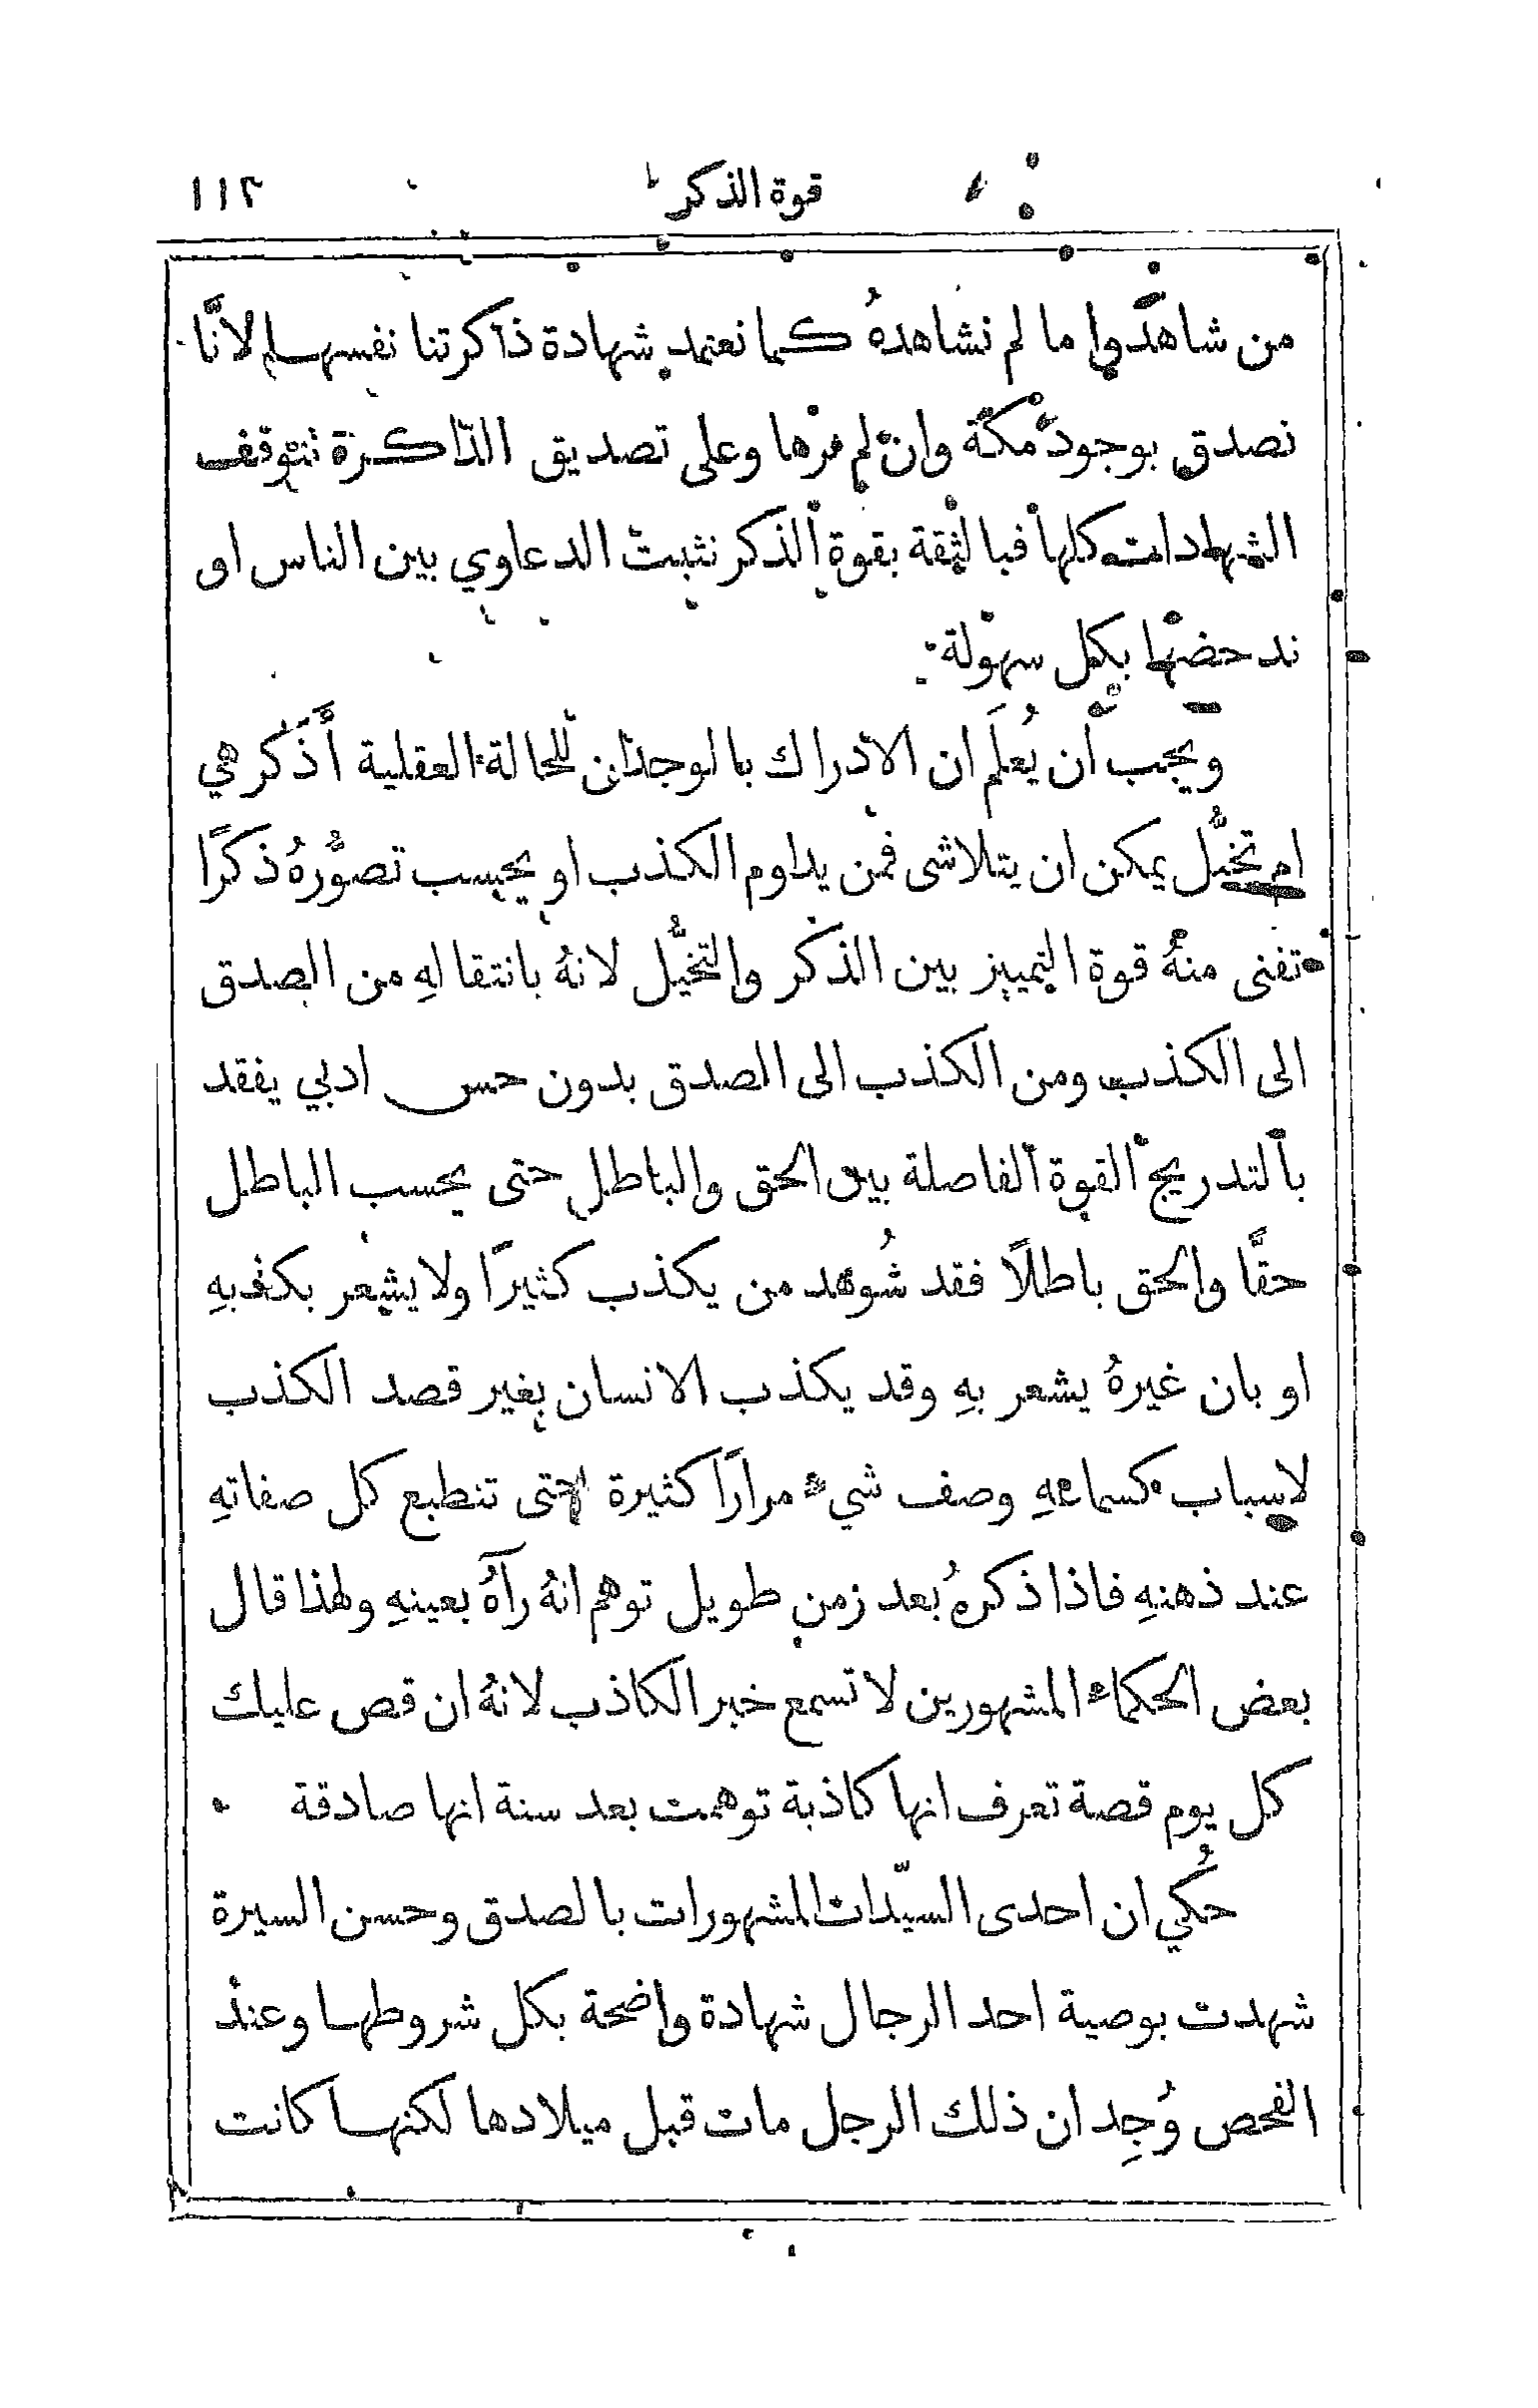 قوة الذكر ١١٢
من شاهدوا ما لم نشاهدهُ كما نعتمد شهادة ذاكرتنا نفسها لانَّا
نصدق بوجود مكة وان لم نرها وعلى تصديق الذاكرة نتوقف
الشهادات كلها فبالثقة بقوة الذكر نثبت الدعاوي بين الناس او
ندحضها بكل سهولة
ويجب ان يُعلَم ان الادراك بالوجدان للحالة العقلية أَذَكر هي
ام تخيُّل يمكن ان يتلاشى فمن يداوم الكذب او يحسب تصوُّرهُ ذكرًا
تفنى منهُ قوة التمييز بين الذكر والتخيُّل لانهُ بانتقالهِ من الصدق
الى الكذب ومن الكذب الى الصدق بدون حس ادبي يفقد
بالتدريج القوة الفاصلة بين الحق والباطل حتى يحسب الباطل
حقًّا والحق باطلًا فقد شُوهد من يكذب كثيرًا ولا يشعر بكذبهِ
او بان غيرهُ يشعر بهِ وقد يكذب الانسان بغير قصد الكذب
لاسباب كسماعهِ وصف شيء مرارًا كثيرة حتى تنطبع كل صفاتهِ
عند ذهنهِ فاذا ذكرهُ بعد زمن طويل توهم انهُ رآهُ بعينهِ ولهذا قال
بعض الحكماء المشهورين لا تسمع خبر الكاذب لانهُ ان قص عليك
كل يوم قصة تعرف انها كاذبة توهمت بعد سنة انها صادقة
حُكي ان احدى السيّدات المشهورات بالصدق وحسن السيرة
شهدت بوصية احد الرجال شهادة واضحة بكل شروطها وعند
الفحص وُجِد ان ذلك الرجل مات قبل ميلادها لكنها كانت